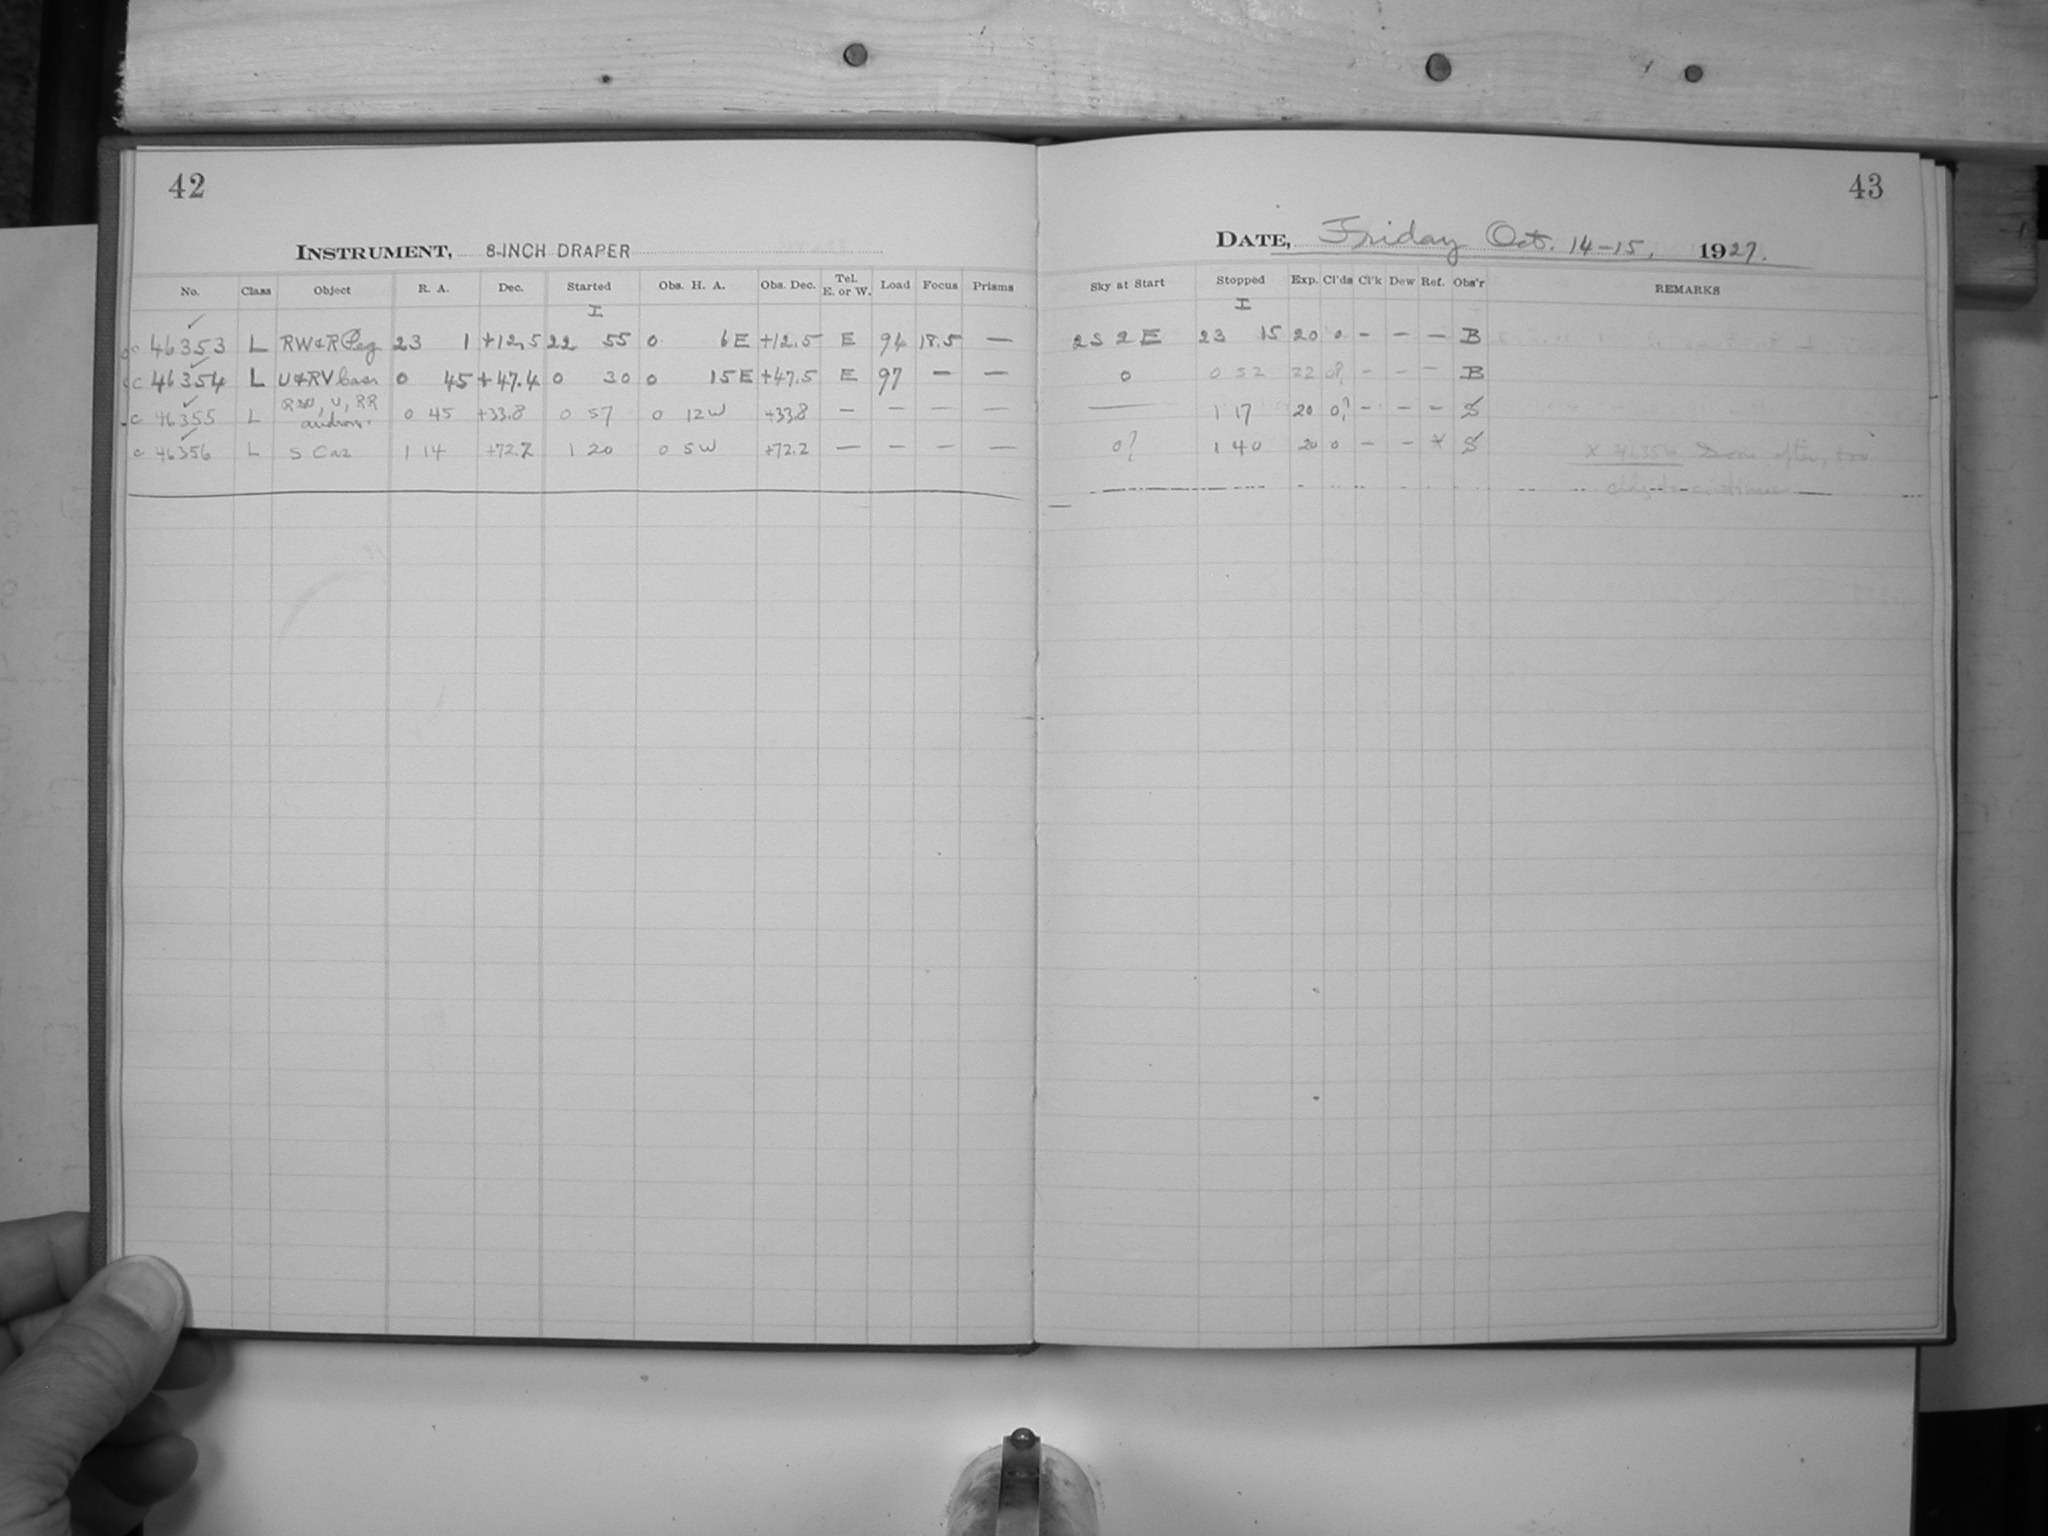 42
INSTRUMENT, 8-INCH DRAPER
No. Class Object R. A. Dec. Started Obs. H. A. Obs. Dec. Tel. E. or W. Load Focus Prisms
I
c 46353 L RW & R Peg 23 1 +12.5 22 55 0 6E +12.5 E 94 18.5 —
c 46354 L U & RV Cass 0 45 +47.4 0 30 0 15E +47.5 E 97 — —
c 46355 L U, RR Androm. 0 45 +33.8 0 57 0 12W +33.8 — — — —
c 46356 L S Cas 1 14 +72.2 1 20 0 5W +72.2 — — — —
43
DATE, Friday Oct. 14-15, 1927.
Sky at Start Stopped Exp. Cl'ds Cl'k Dew Ref. Obs'r REMARKS
I
2S 2E 23 15 20 0 - - - B
0 0 52 22 0? - - - B
— 1 17 20 0? - - - S
0? 1 40 20 0 - - x S x 46356 after, too
cldy to continue